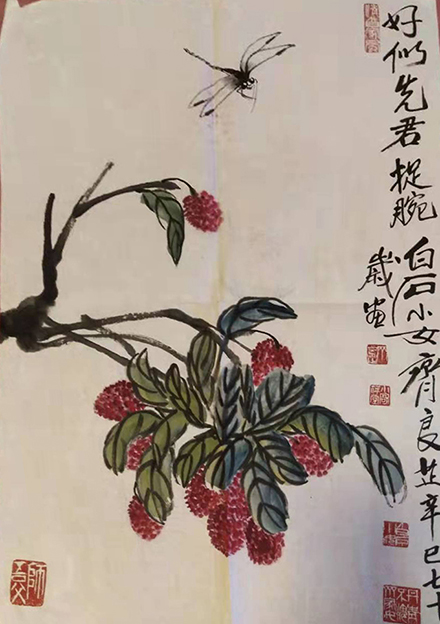 好似先君捉腕白石小女齊良芷辛巳七十
歲畫